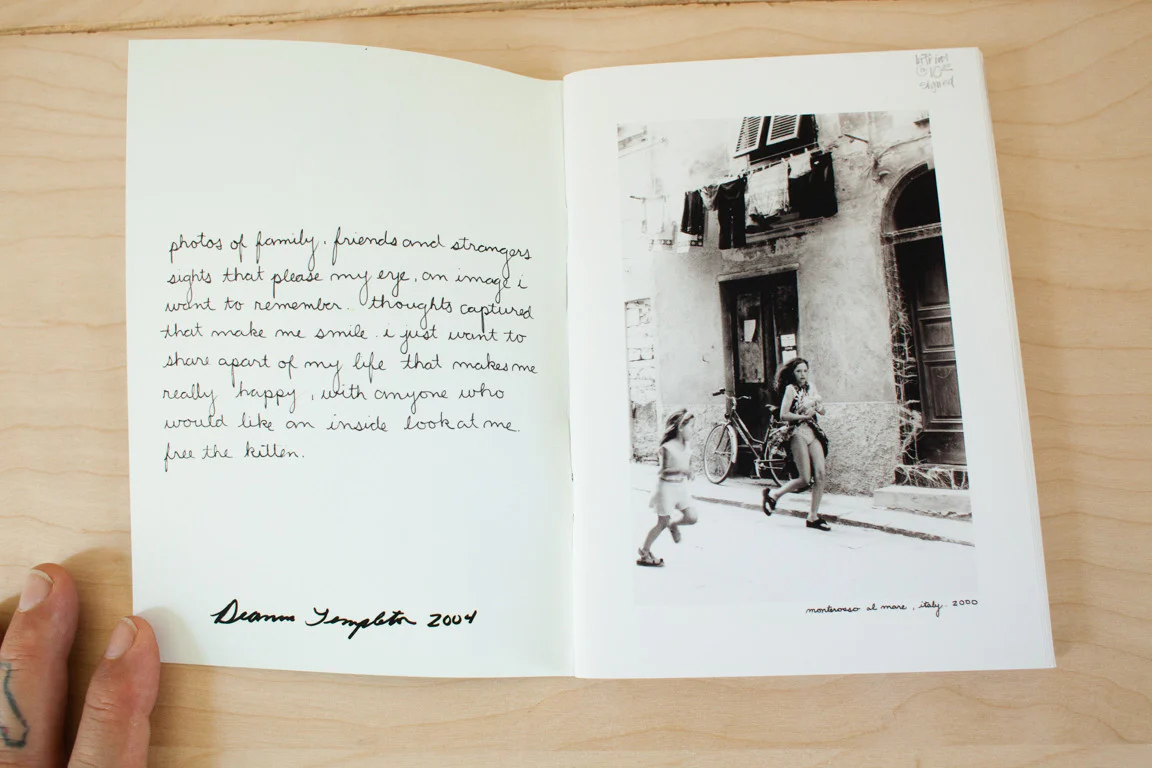 photos of family, friends and strangers
sights that please my eye, an image i
want to remember. thoughts captured
that make me smile. i just want to
share apart of my life that makes me
really happy, with anyone who
would like an inside look at me.
free the kitten.
Deanna Templeton 2004
signed
monterosso al mare, italy. 2000